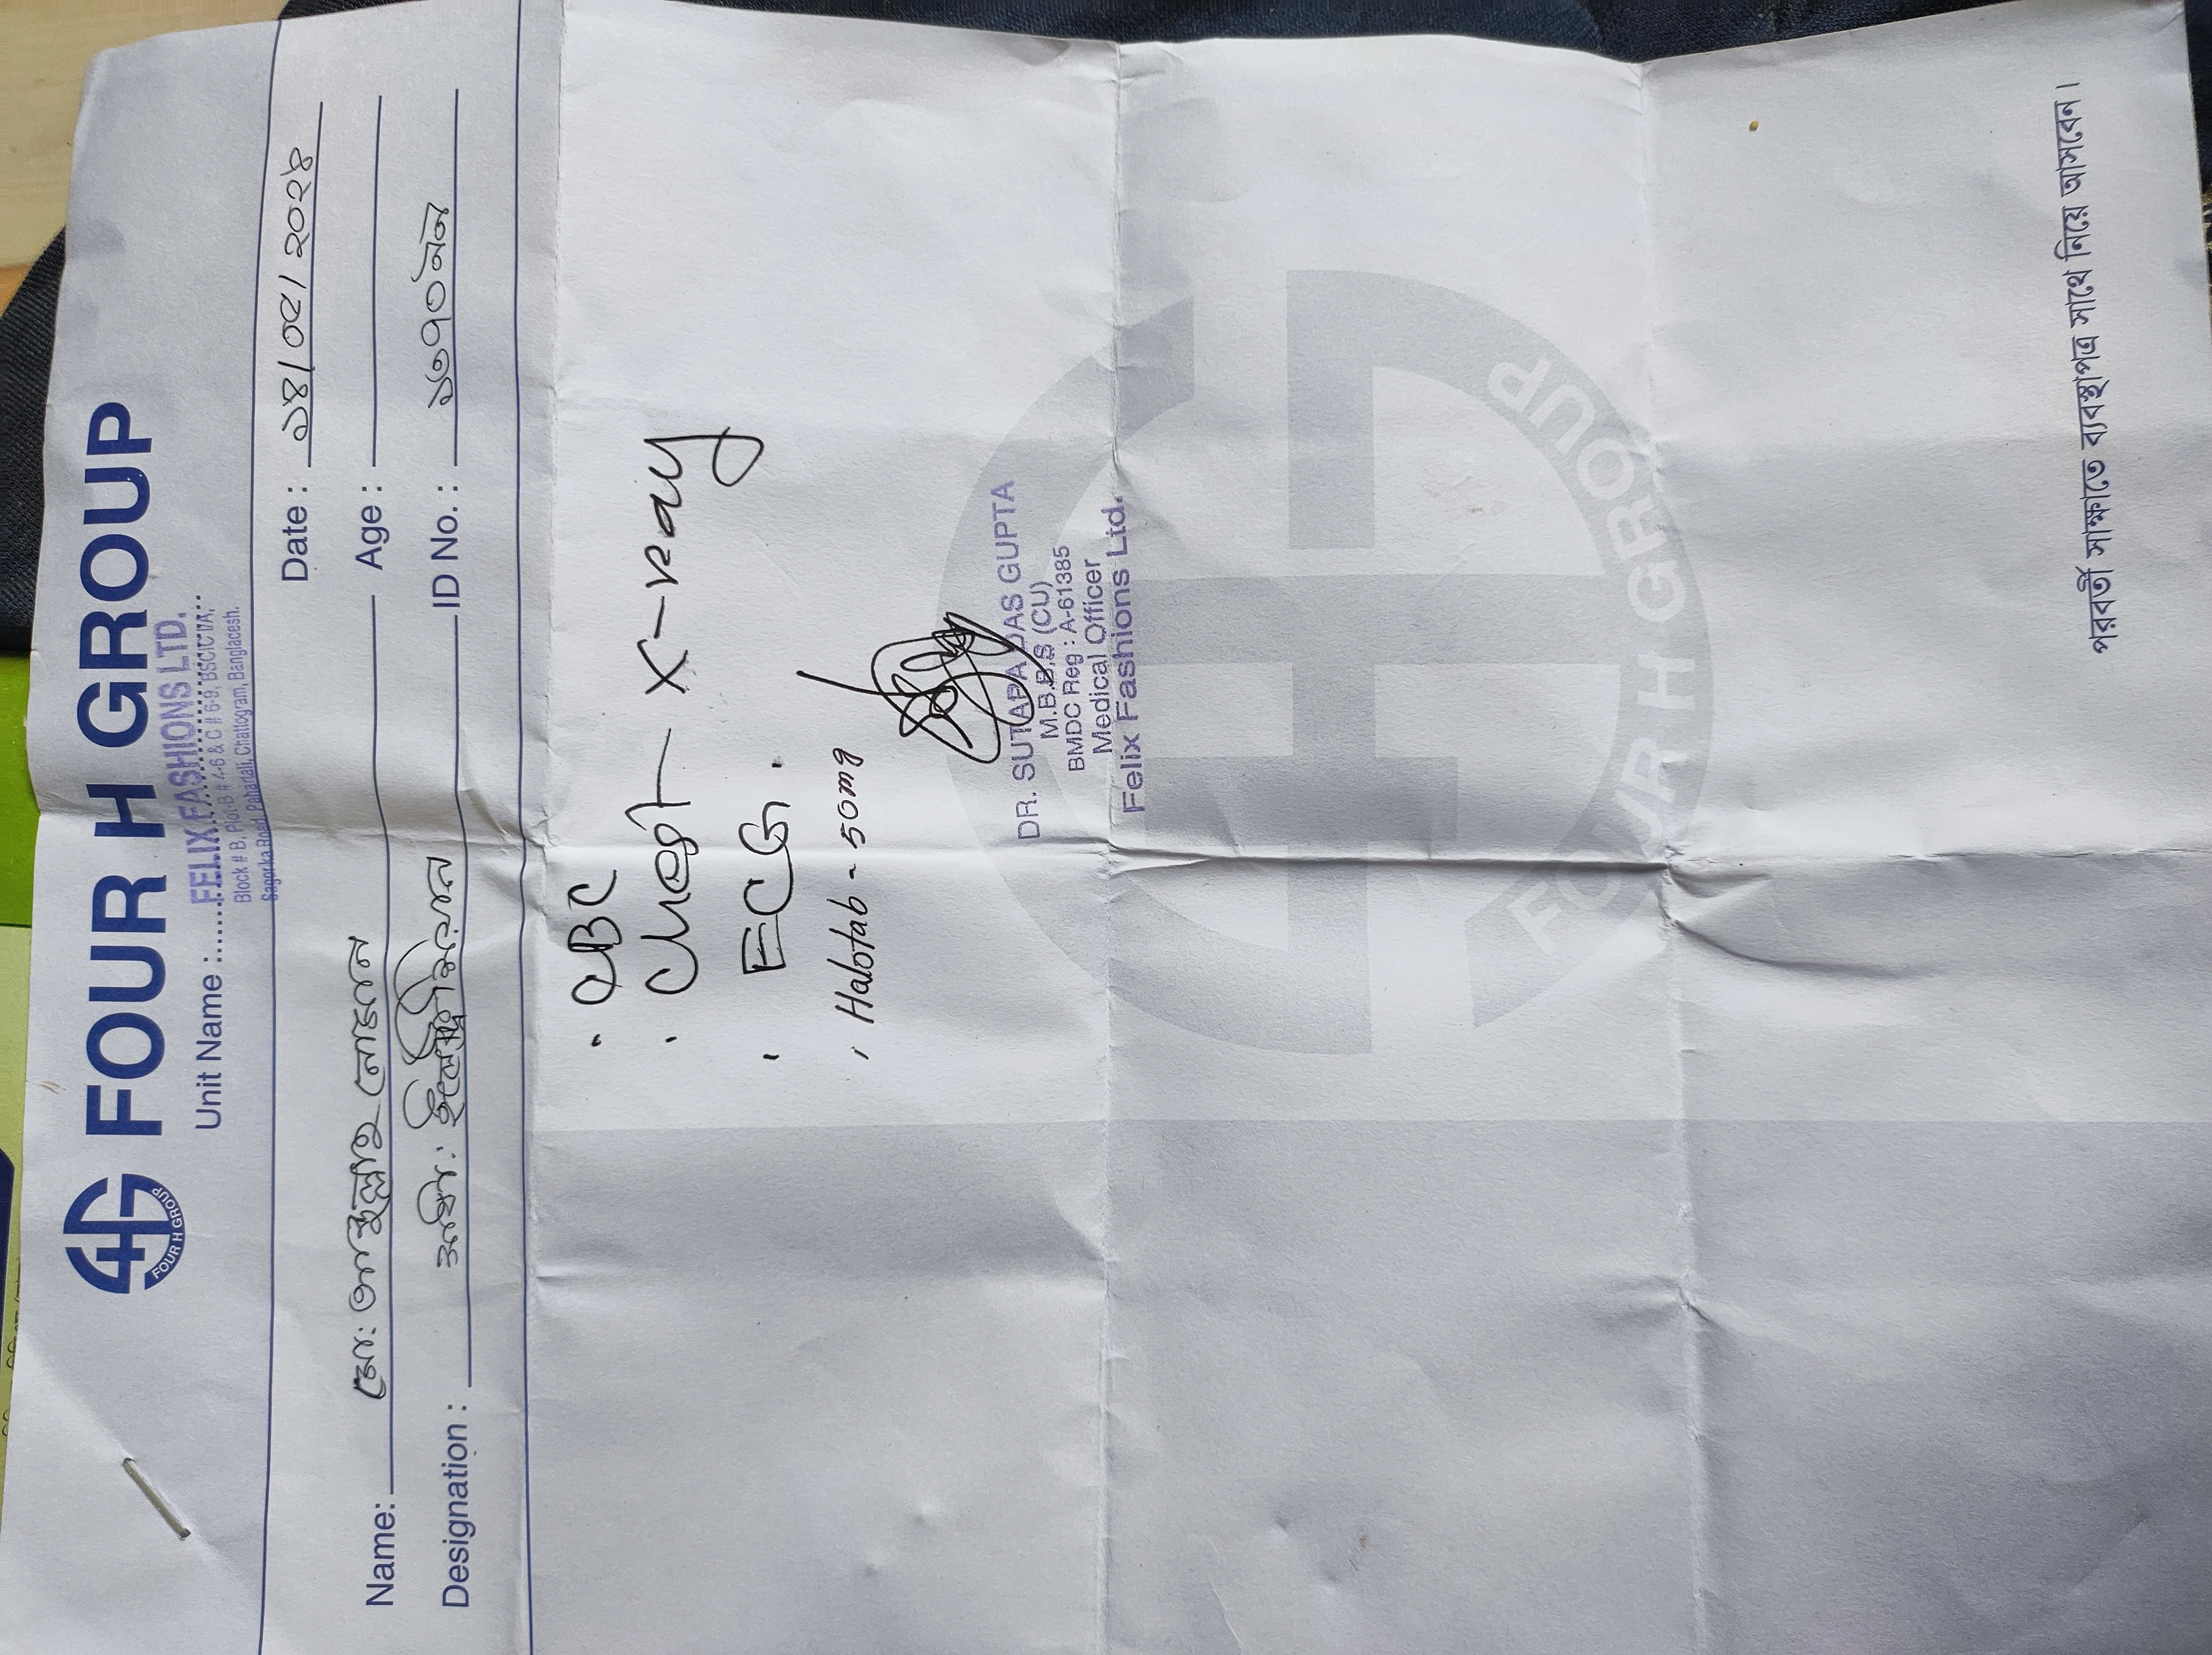 FOUR H GROUP
FOUR H GROUP
Unit Name :...... FELIX FASHIONS LTD.
Block # B, Plot-B # 4-6 & C # 6-9, BSCIC I/A,
Sagorika Road, Pahartali, Chattogram, Bangladesh.
Date : ১৪/০৫/২০২৪
Name: মো: আব্দুল্লাহ
Age :
Designation :
ID No. :
· CBC
· Chest X-ray
· ECG.
· Halotab - 50mg
DR. SUTAPA DAS GUPTA
M.B.B.S (CU)
BMDC Reg : A-61385
Medical Officer
Felix Fashions Ltd.
FOUR H GROUP
পরবর্তী সাক্ষাতে ব্যবস্থাপত্র সাথে নিয়ে আসবেন।